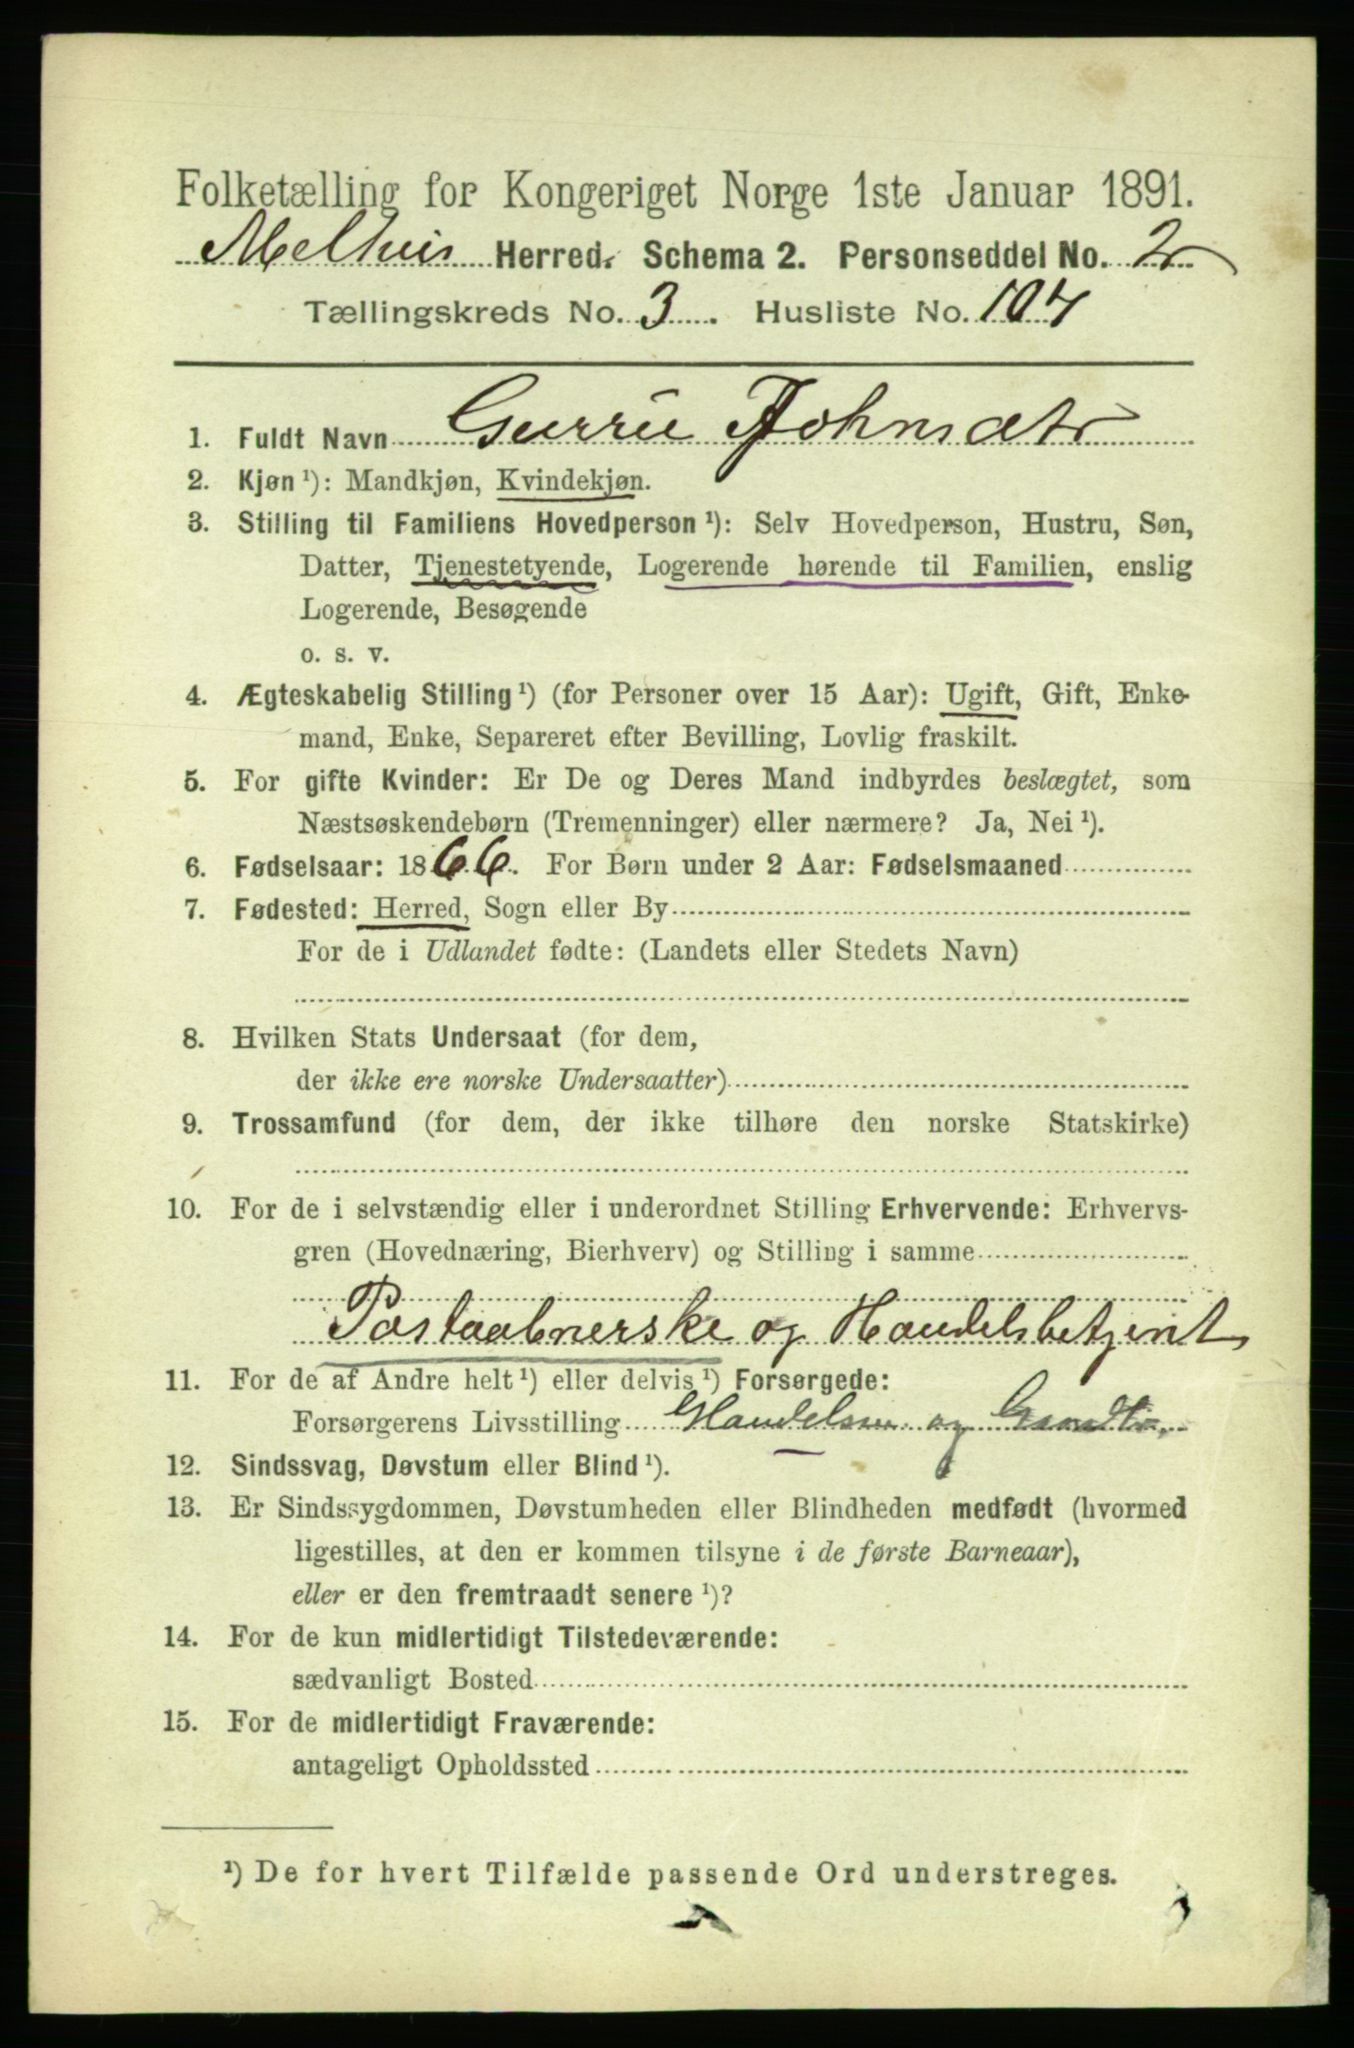 Folketælling for Kongeriget Norge 1ste Januar 1891.
Melhus Herred. Schema 2. Personseddel No. 2
Tællingskreds No. 3. Husliste No. 107
1. Fuldt Navn Gurru Johnsdtr
2. Kjøn ¹): Mandkjøn, Kvindekjøn.
3. Stilling til Familiens Hovedperson ¹): Selv Hovedperson, Hustru, Søn,
Datter, Tjenestetyende, Logerende hørende til Familien, enslig
Logerende, Besøgende
o. s. v.
4. Ægteskabelig Stilling ¹) (for Personer over 15 Aar): Ugift, Gift, Enke-
mand, Enke, Separeret efter Bevilling, Lovlig fraskilt.
5. For gifte Kvinder: Er De og Deres Mand indbyrdes beslægtet, som
Næstsøskendebørn (Tremenninger) eller nærmere? Ja, Nei ¹).
6. Fødselsaar: 1866. For Børn under 2 Aar: Fødselsmaaned
7. Fødested: Herred, Sogn eller By
For de i Udlandet fødte: (Landets eller Stedets Navn)
8. Hvilken Stats Undersaat (for dem,
der ikke ere norske Undersaatter)
9. Trossamfund (for dem, der ikke tilhøre den norske Statskirke)
10. For de i selvstændig eller i underordnet Stilling Erhvervende: Erhvervs-
gren (Hovednæring, Bierhverv) og Stilling i samme
Postaabnerske og Handelsbetjent
11. For de af Andre helt ¹) eller delvis ¹) Forsørgede:
Forsørgerens Livsstilling Handelsm. og
12. Sindssvag, Døvstum eller Blind ¹).
13. Er Sindssygdommen, Døvstumheden eller Blindheden medfødt (hvormed
ligestilles, at den er kommen tilsyne i de første Barneaar),
eller er den fremtraadt senere ¹)?
14. For de kun midlertidigt Tilstedeværende:
sædvanligt Bosted
15. For de midlertidigt Fraværende:
antageligt Opholdssted
¹) De for hvert Tilfælde passende Ord understreges.